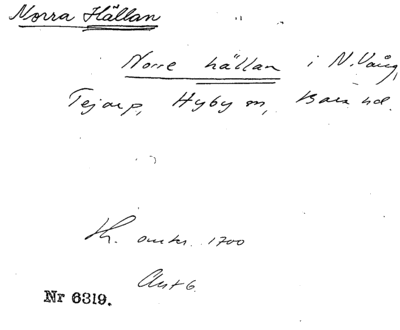 Norra Hällan
Norre hällan i N. Vång,
Tejarp, Hyby sn, Bara hd.
omkr. 1700
Akt 6
Nr 6319.